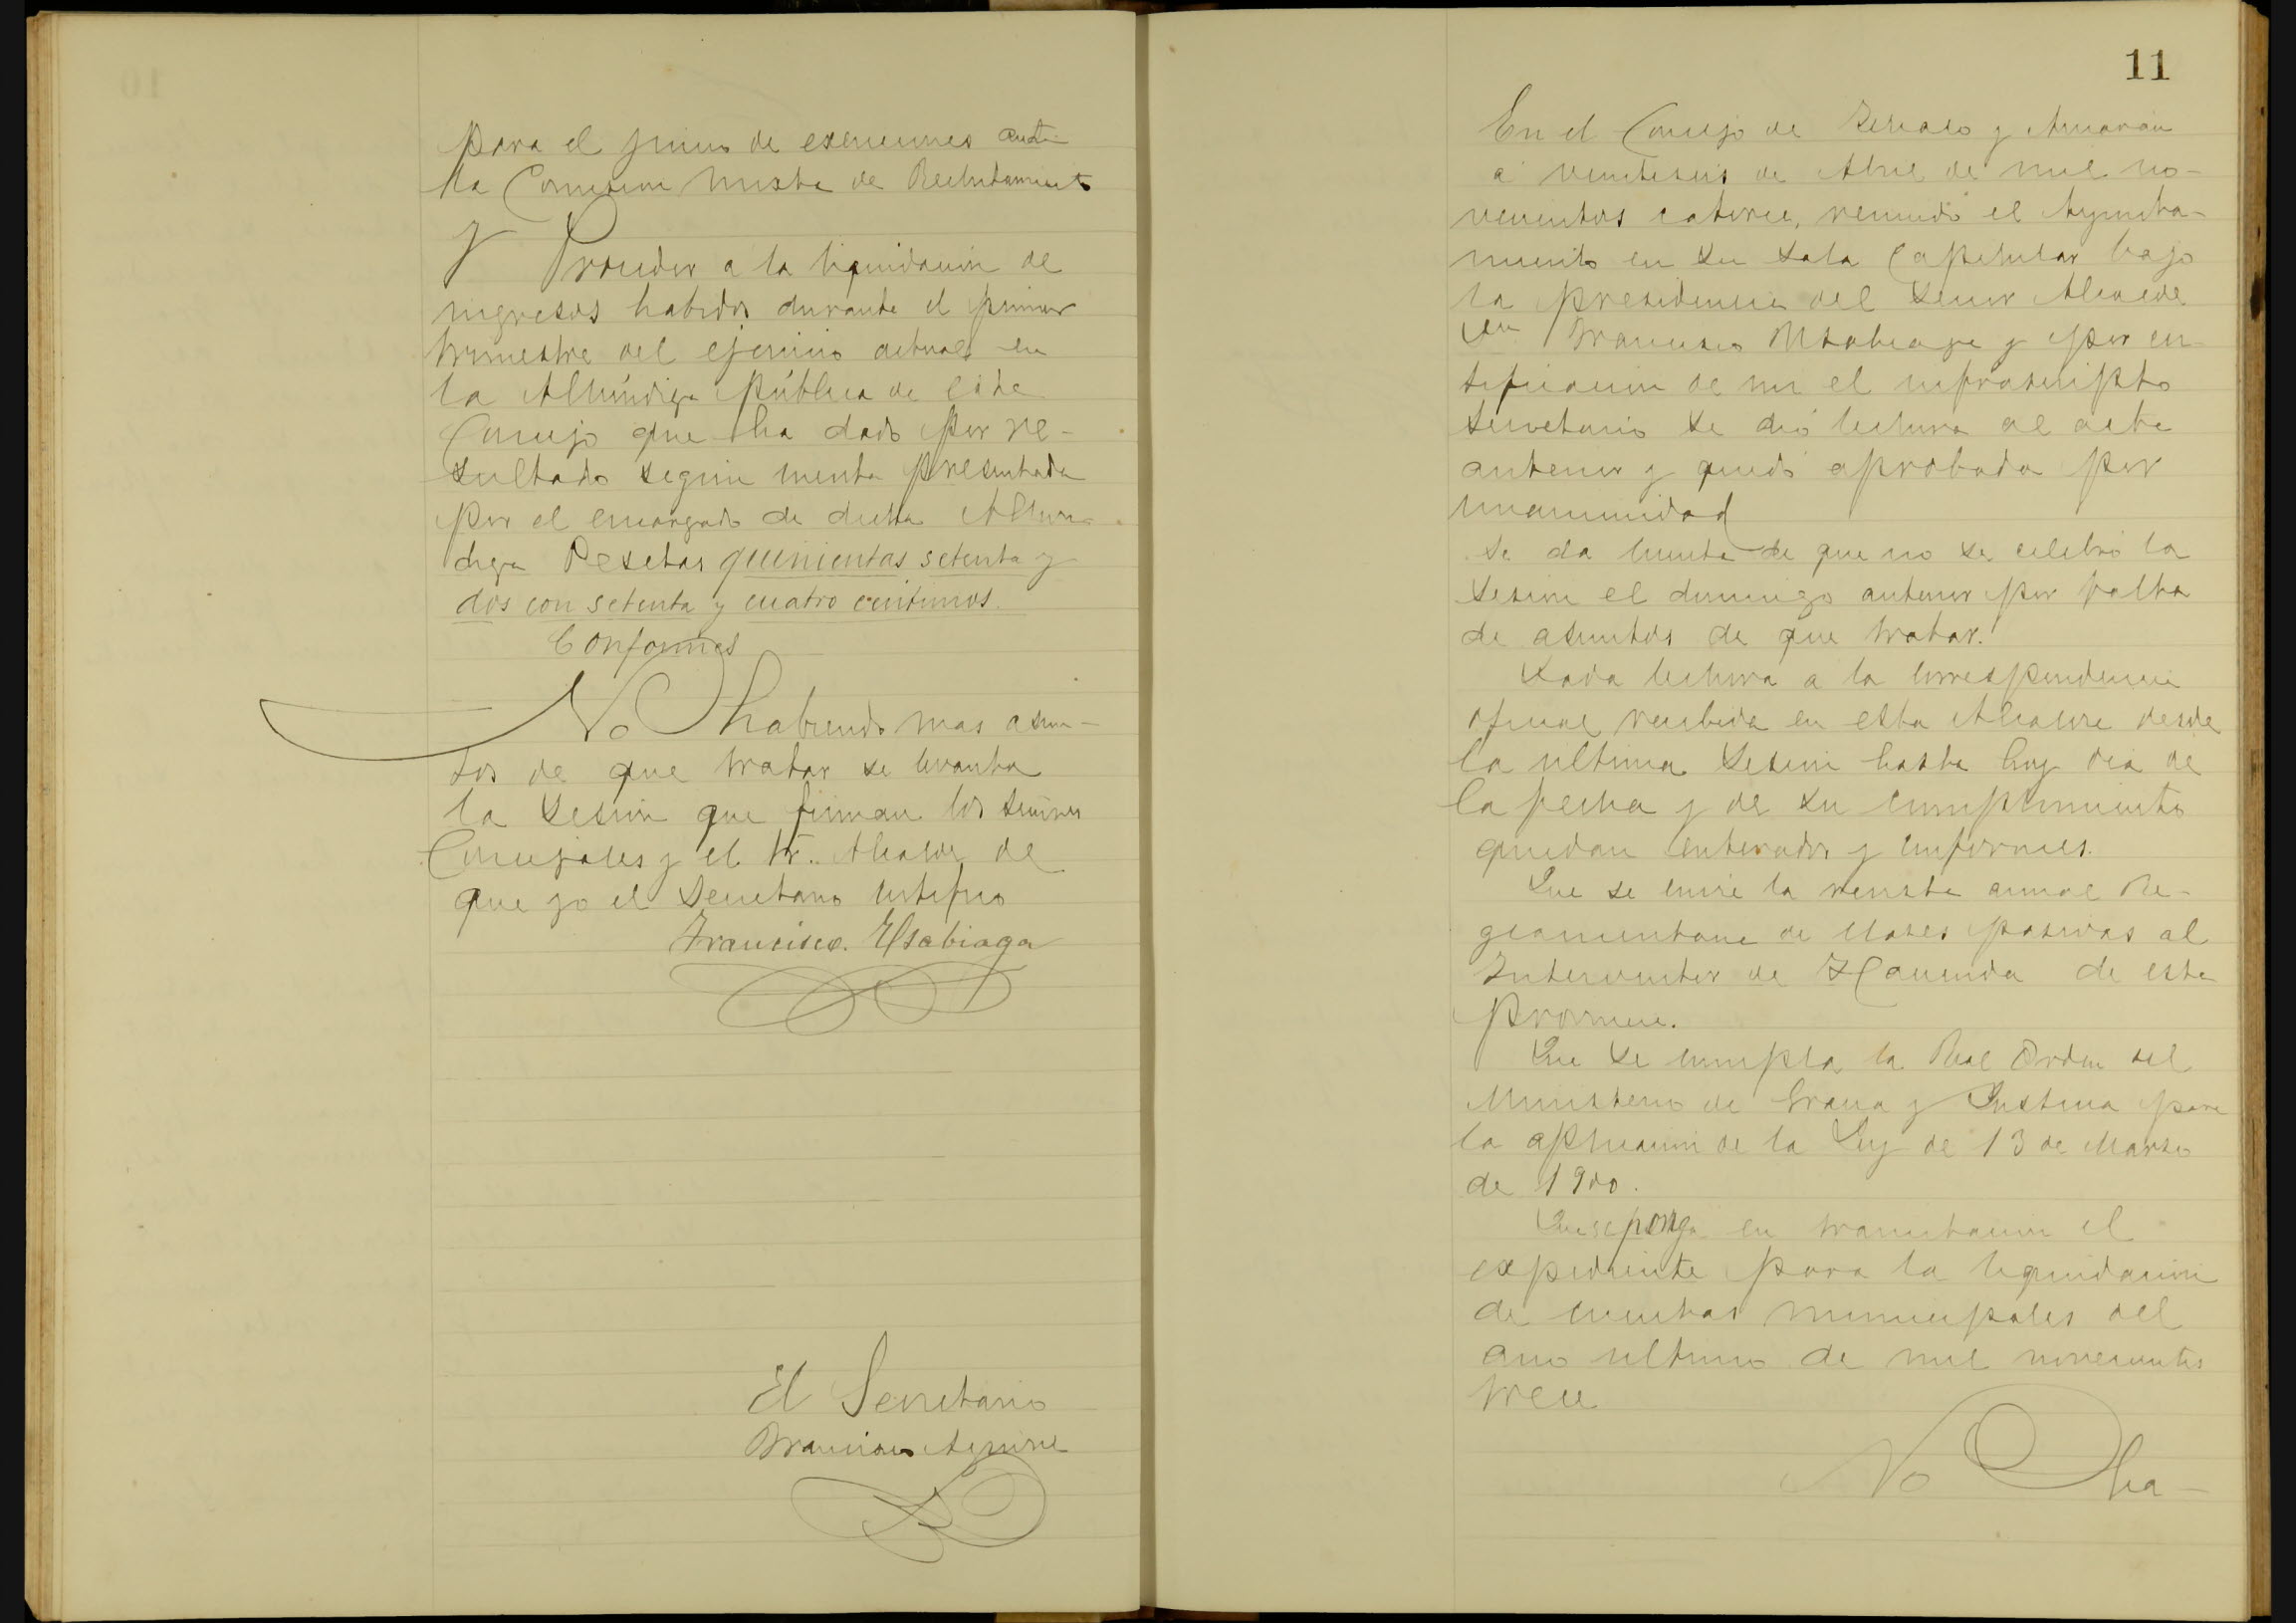 para el juicio de exenciones ante
la Comision mista de Reclutamiento
y Proceder a la liquidación de
ingresos habidos durante el primer
trimestre del ejercicio actual en
la Alhóndiga pública de este
Concejo que ha dado por re-
sultado segun cuenta presentada
por el encargado de dicha Alhon-
diga Pesetas quinientas setenta y
dos con setenta y cuatro centimos.
Conformes
No habiendo mas asun-
tos de que tratar se levanta
la Sesion que firman los señores
Concejales y el Sr. Alcalde de
que yo el Secretario certifico
Francisco Usabiaga
El Secretario
Francisco Aguirre
11
En el Concejo de y
a veintiseis de Abril de mil no-
vecientos catorce, reunido el Ayunta-
miento en su Sala Capitular bajo
la presidencia del Señor Alcalde
Don Francisco Usabiaga y por cer-
tificacion de mi el infrascripto
Secretario se dió lectura al acta
anterior y quedó aprobada por
unanimidad
Se da cuenta de que no se celebró la
Sesion el domingo anterior por falta
de asuntos de que tratar.
Dada lectura a la correspondencia
oficial recibida en esta Alcaldia desde
la ultima Sesion hasta hoy dia de
la fecha y de su cumplimiento
quedan enterados y conformes.
Que se envie la revista anual Re-
glamentaria de clases pasivas al
Interventor de Hacienda de esta
provincia.
Que se cumpla la Real Orden del
Ministerio de Gracia y Justicia para
la aplicacion de la Ley de 13 de Marzo
de 1900.
Que se ponga en tramitacion el
expediente para la liquidacion
de cuentas municipales del
año ultimo de mil novecientos
trece
No ha-